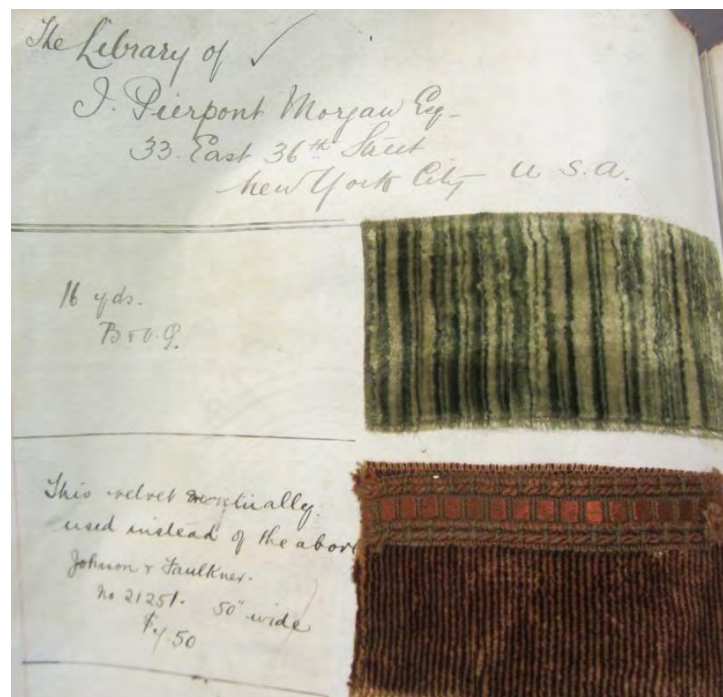 The Library of
J. Pierpont Morgan Esq
33. East 36th Street
New York City U.S.A.
16 yds.
This velvet
used instead of the above
Johnson & Faulkner.
No 21251. 50" wide
.50